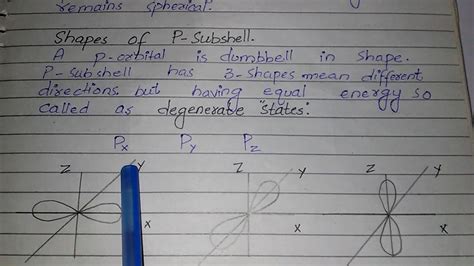 remains spherical.
Shapes of P-Subshell.
A p-orbital is dumbbell in shape.
P-Subshell has 3-shapes mean different
directions but having equal energy so
called as degenerate "states".
Px Py Pz
Z y Z y Z y
x x x